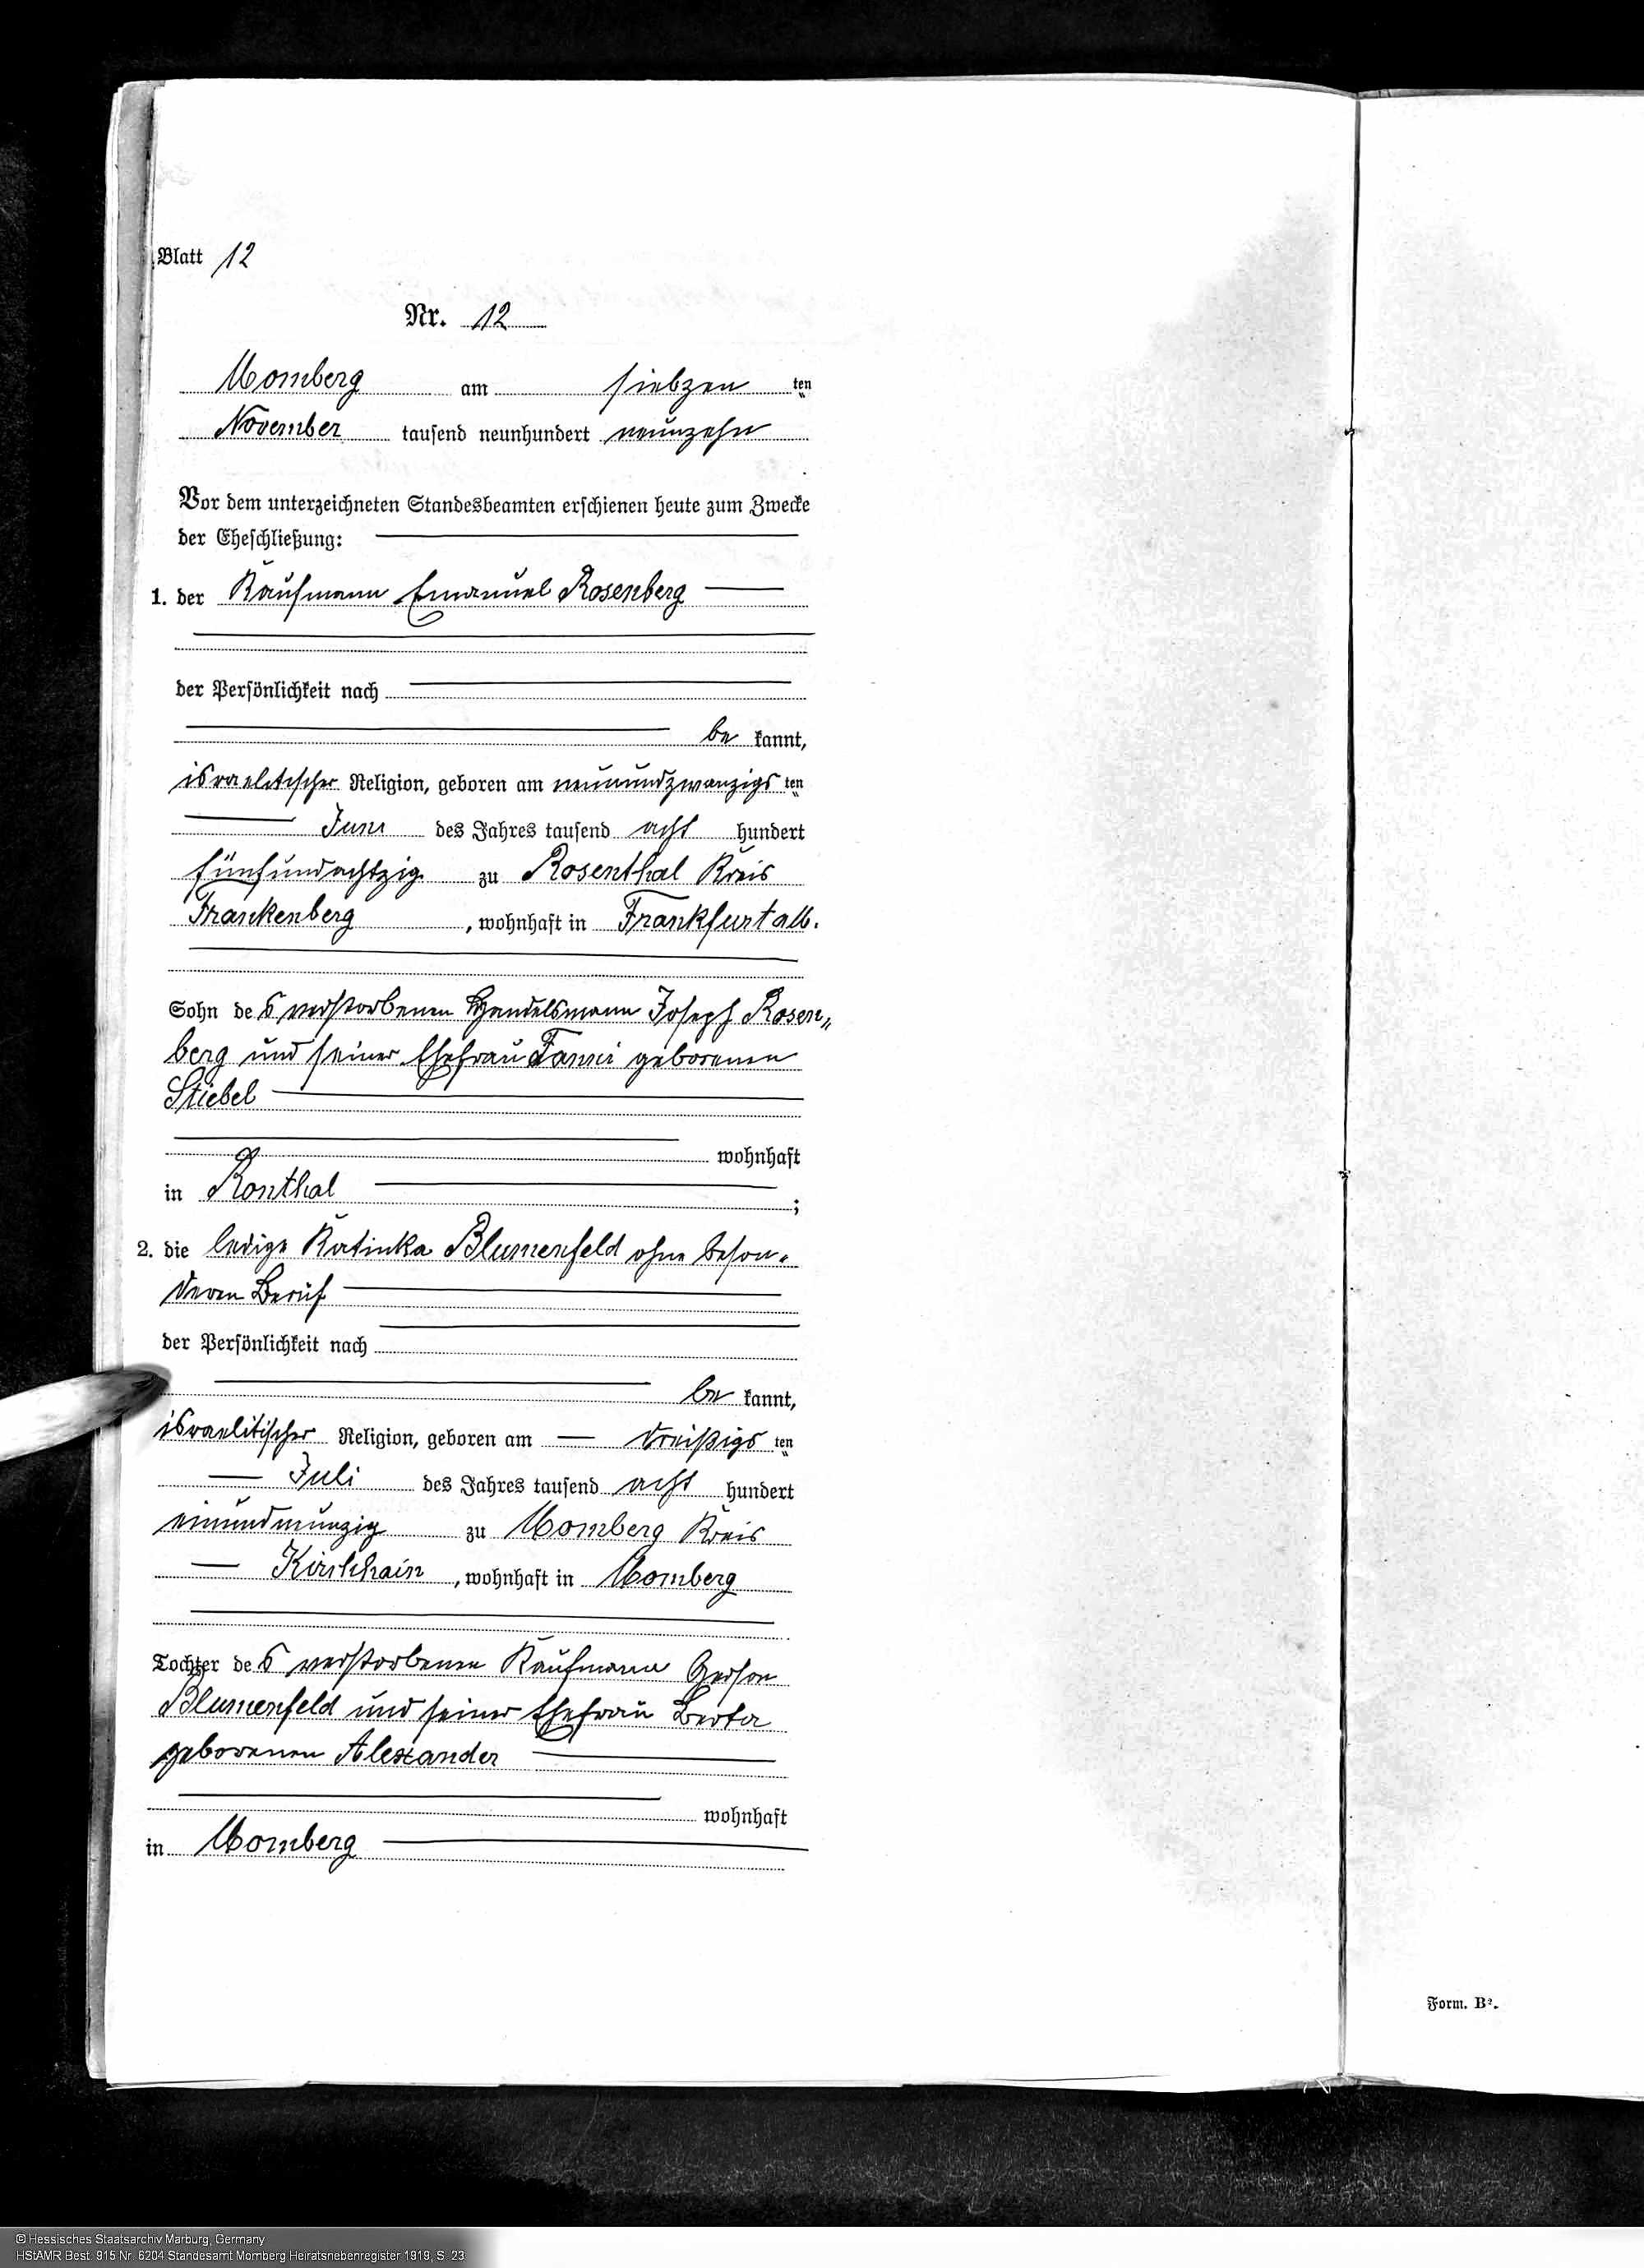 Blatt 12
Nr. 12
Momberg am siebzen ten
November tausend neunhundert neunzehn
Vor dem unterzeichneten Standesbeamten erschienen heute zum Zwecke
der Eheschließung:
1. der Kaufmann Emanuel Rosenberg
der Persönlichkeit nach
be kannt,
israelitischer Religion, geboren am neunundzwanzigs ten
Juni des Jahres tausend acht hundert
fünfundachtzig zu Rosenthal Kreis
Frankenberg, wohnhaft in Frankfurt a/M.
Sohn des verstorbenen Handelsmann Joseph Rosen„
berg und seiner Ehefrau Fanni geborenen
Stiebel
wohnhaft
in Ronthal;
2. die ledige Katinka Blumenfeld ohne beson-
deren Beruf
der Persönlichkeit nach
be kannt,
israelitischer Religion, geboren am dreißigs ten
Juli des Jahres tausend acht hundert
einundneunzig zu Momberg Kreis
Kirchhain, wohnhaft in Momberg
Tochter des verstorbenen Kaufmann Gerson
Blumenfeld und seiner Ehefrau Berta
geborenen Alexander
wohnhaft
in Momberg
Form. B².
© Hessisches Staatsarchiv Marburg, Germany
HStAMR Best. 915 Nr. 6204 Standesamt Momberg Heiratsnebenregister 1919, S. 23